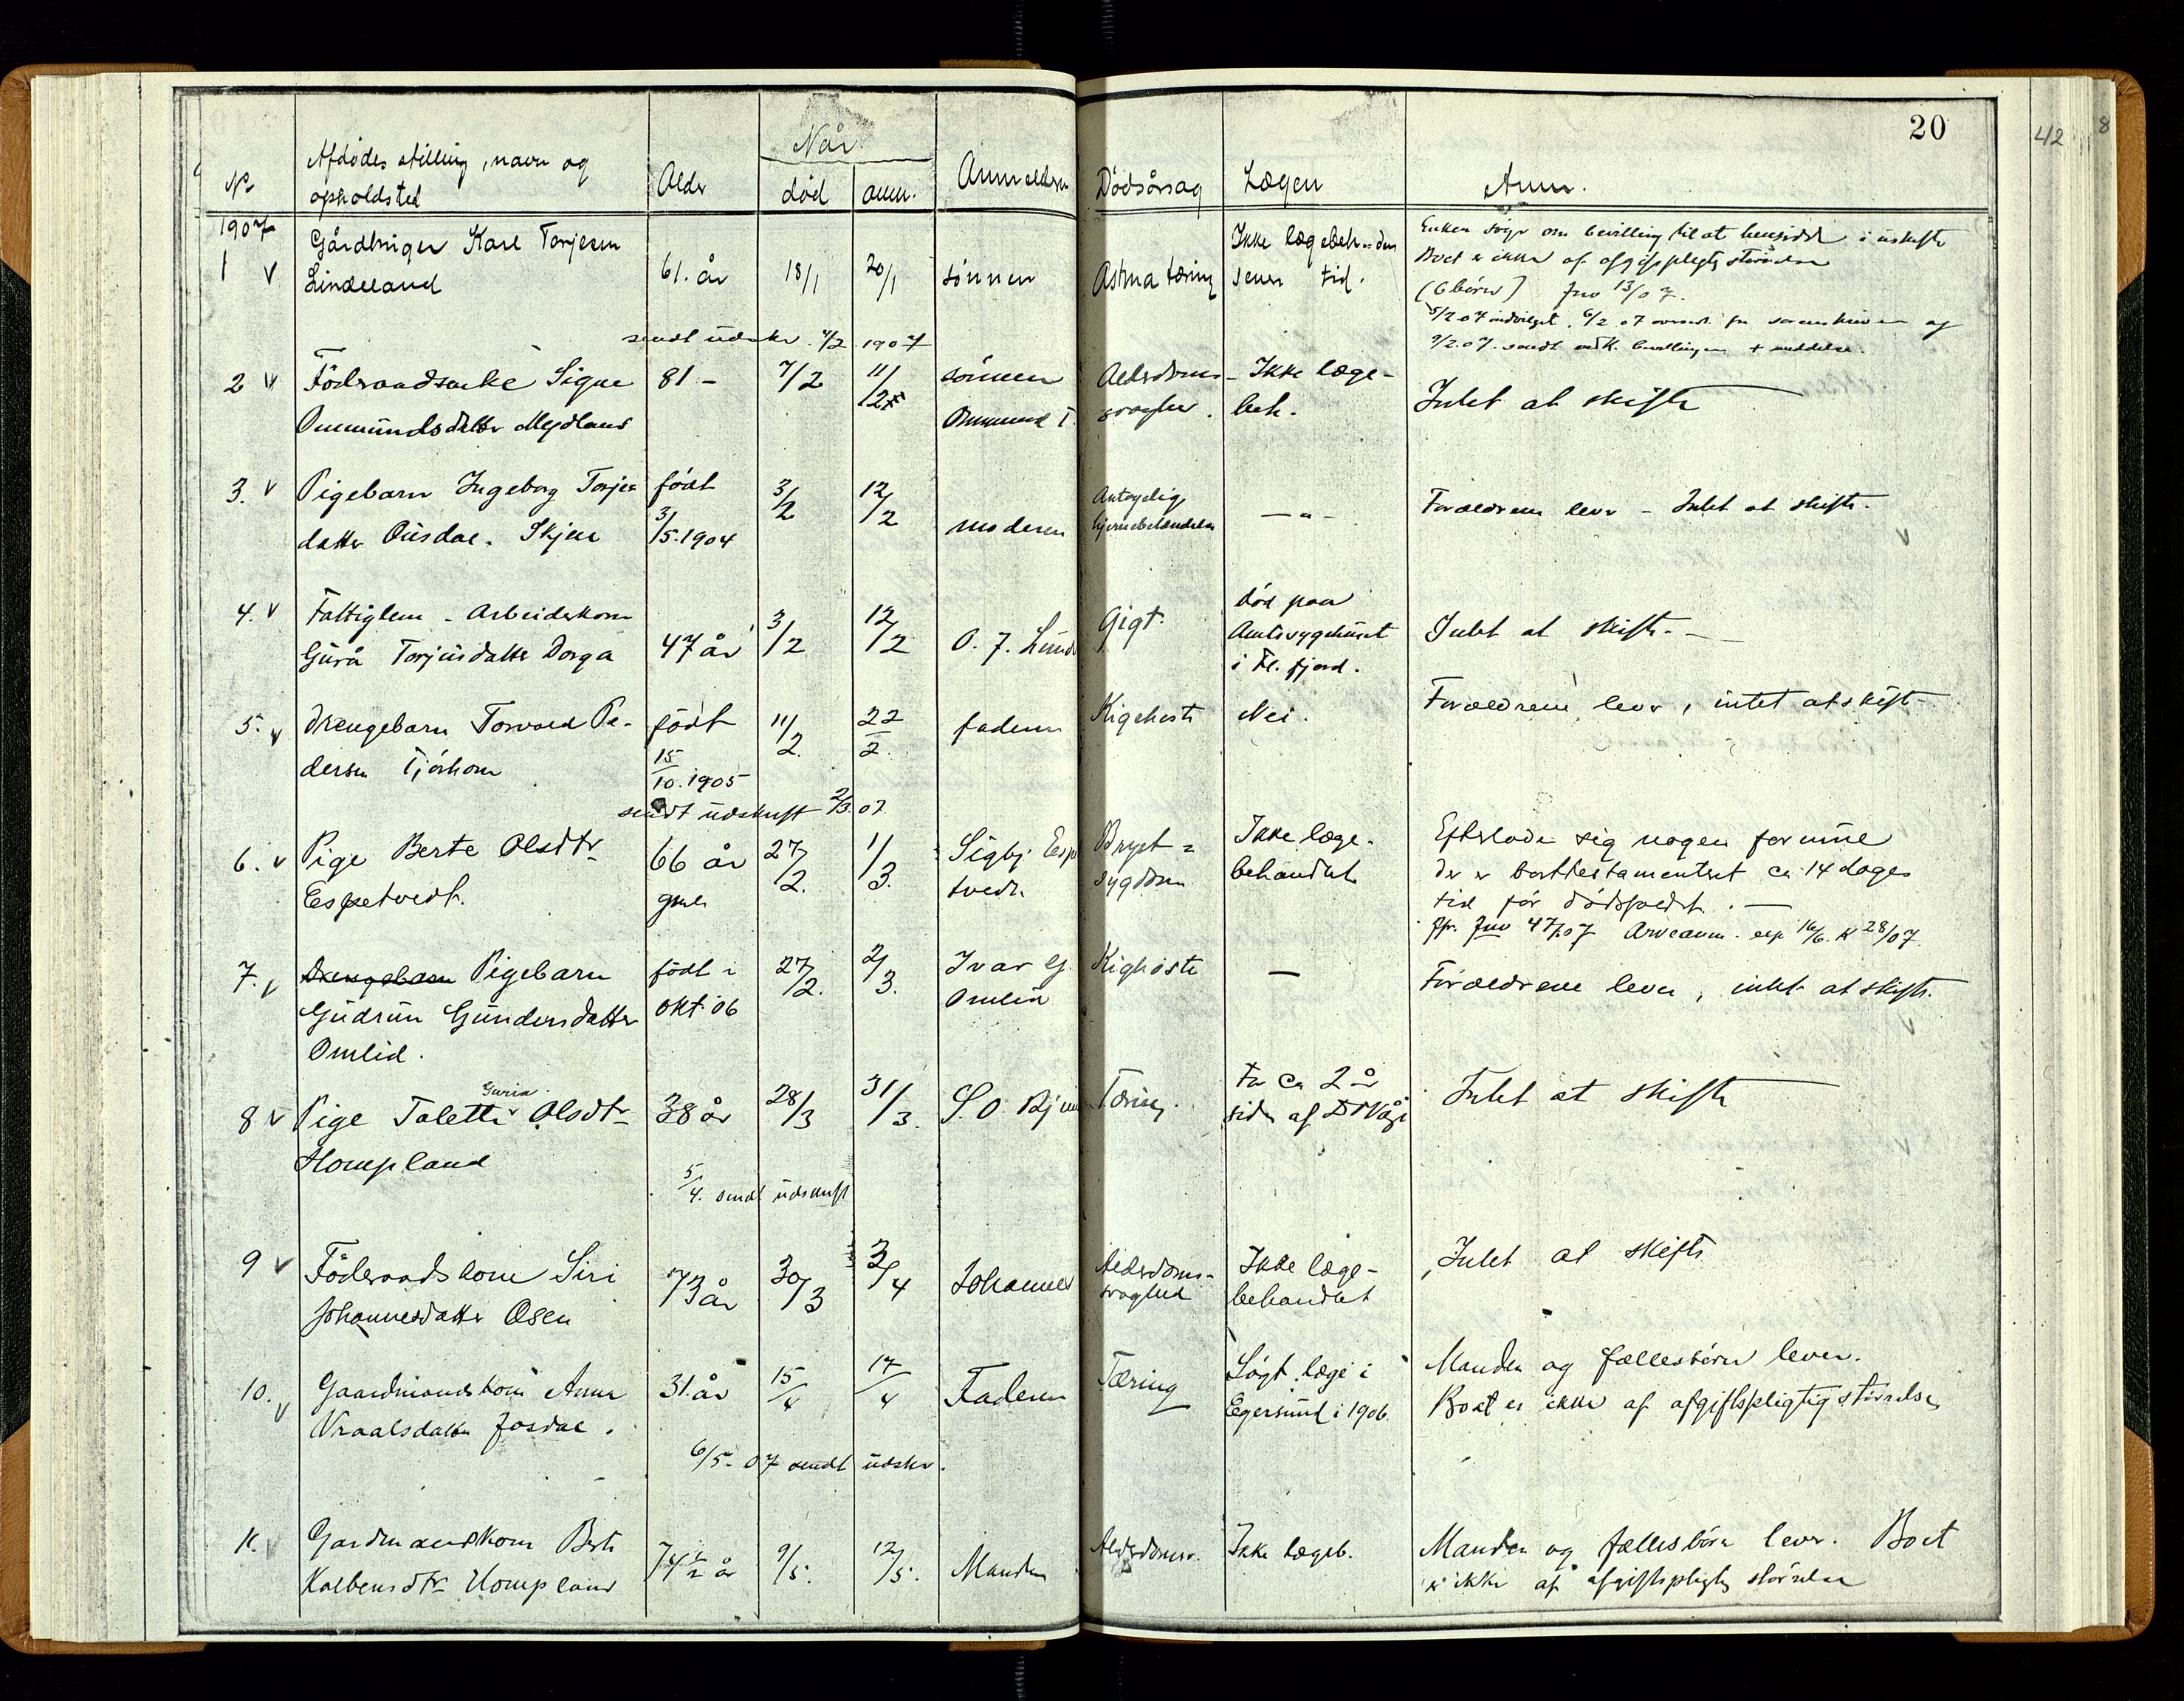 20
42
8
No
Afdødes stilling, navn og
opholdsted
Alder
Når
død
anm.
Anmelderen
Dødsårsag
Lægen
Anm.
1907
1 v
Gårdbruger Karl Torjesen
Lindeland
61. år
18/1
20/1
sønnen
Astma tæring
Ikke lægebeh. den
senere tid.
Enken søger om bevilling til at hensidde i uskifte
Boet er ikke af afgiftspligtig størrelse
(6 børn) Jnr 13/07.
5/2 07 indvilget. 6/2 07 fra sorenskriveren og
9/2.07. sendt vedk. bevillingen + meddelelse.
sendt udskr. 4/2 1907
2 v
Føderaadsenke Signe
Ommundsdatter Mydland
81 -
7/2
11/2
sønnen
Ommund T.
Alderdoms-
svaghed.
Ikke læge-
beh.
Intet at skifte
3. v
Pigebarn Ingeborg Torjes
datter Ousdal. Skjen
født
3/5.1904
3/2
12/2
moderen
Antagelig
hjernebetændelse
— " —
Forældrene lever - Intet at skifte.
4. v
Fattiglem - Arbeiderkone
Gurå Torjusdatter Dorga
47 år
3/2
12/2
O. J. Lunde
Gigt.
død paa
Amtssygehuset
i Fl. fjord.
Intet at skifte. —
5. v
Drengebarn Torvald Pe-
dersen Tjørhom
født
15/10.1905
11/2.
22/2.
faderen
Kighoste
Nei.
Forældrene lever, intet at skifte
sendt udskrift 2/3.07
6. v
Pige Berte Olsdtr
Espetvedt.
66 år
gml.
27/2.
1/3.
Sigbj. Espe
tvedt.
Bryst =
sygdom
Ikke læge-
behandlet
Efterlader sig nogen formue
der er borttestamenteret ca 14 dages
tid før dødsfaldet. —
Jfr. Jnr 47/07 Arveanm. exp 16/6. K 28/07
7. v
Drengebarn Pigebarn
Gudrun Gundersdatter
Omlid.
født i
okt. 06
27/2.
2/3.
Ivar G.
Omlid
Kighoste
—
Forældrene lever, intet at skifte.
8 v
Pige Taletti Guria Olsdtr
Hompland
38 år
28/3
31/3.
S. O.
Tæring.
For ca 2 år
siden af Dr Våge
Intet at skifte
5/4. sendt udskrift
9 v
Føderaadskone Siri
Johannesdatter Osen
73 år
30/3
3/4
Johannes
Alderdoms-
svaghed
Ikke læge-
behandlet
Intet at skifte
10. v
Gaardmandskone Anna
Vraalsdatter Josdal.
31. år
15/4
17/4
Faderen
Tæring
Søgt læge i
Egersund i 1906.
Manden og fællesbørn lever.
Boet er ikke af afgiftspligtig størrelse
6/5-07 sendt udskr.
11. v
Gardmandskone Berte
Kolbensdtr Hompland
74 1/2 år
9/5.
12/5.
Manden
Alderdomsv.
Ikke lægeb.
Manden og fællesbørn lever. Boet
er ikke af afgiftspligtig størrelse